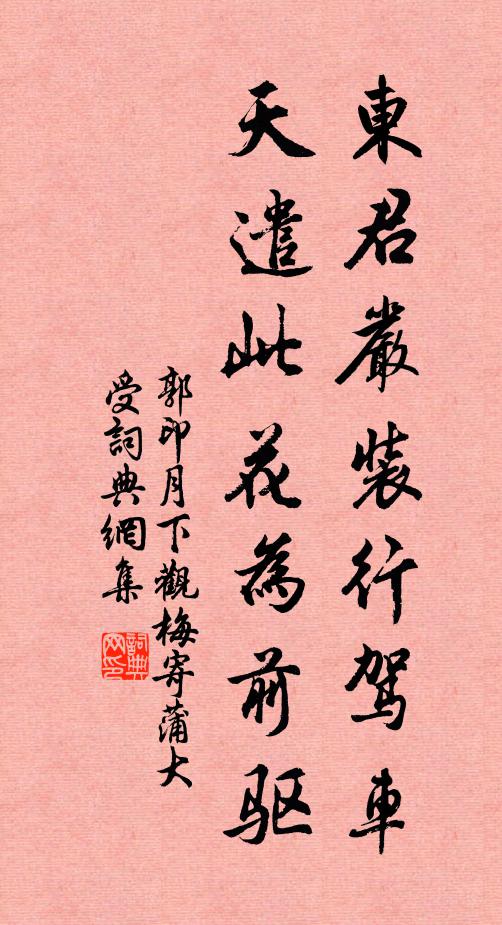 東君嚴裝行駕車
天遣此花為前驱
郭印月下觀梅寄蒲大
受詞典網集
詞典
网印